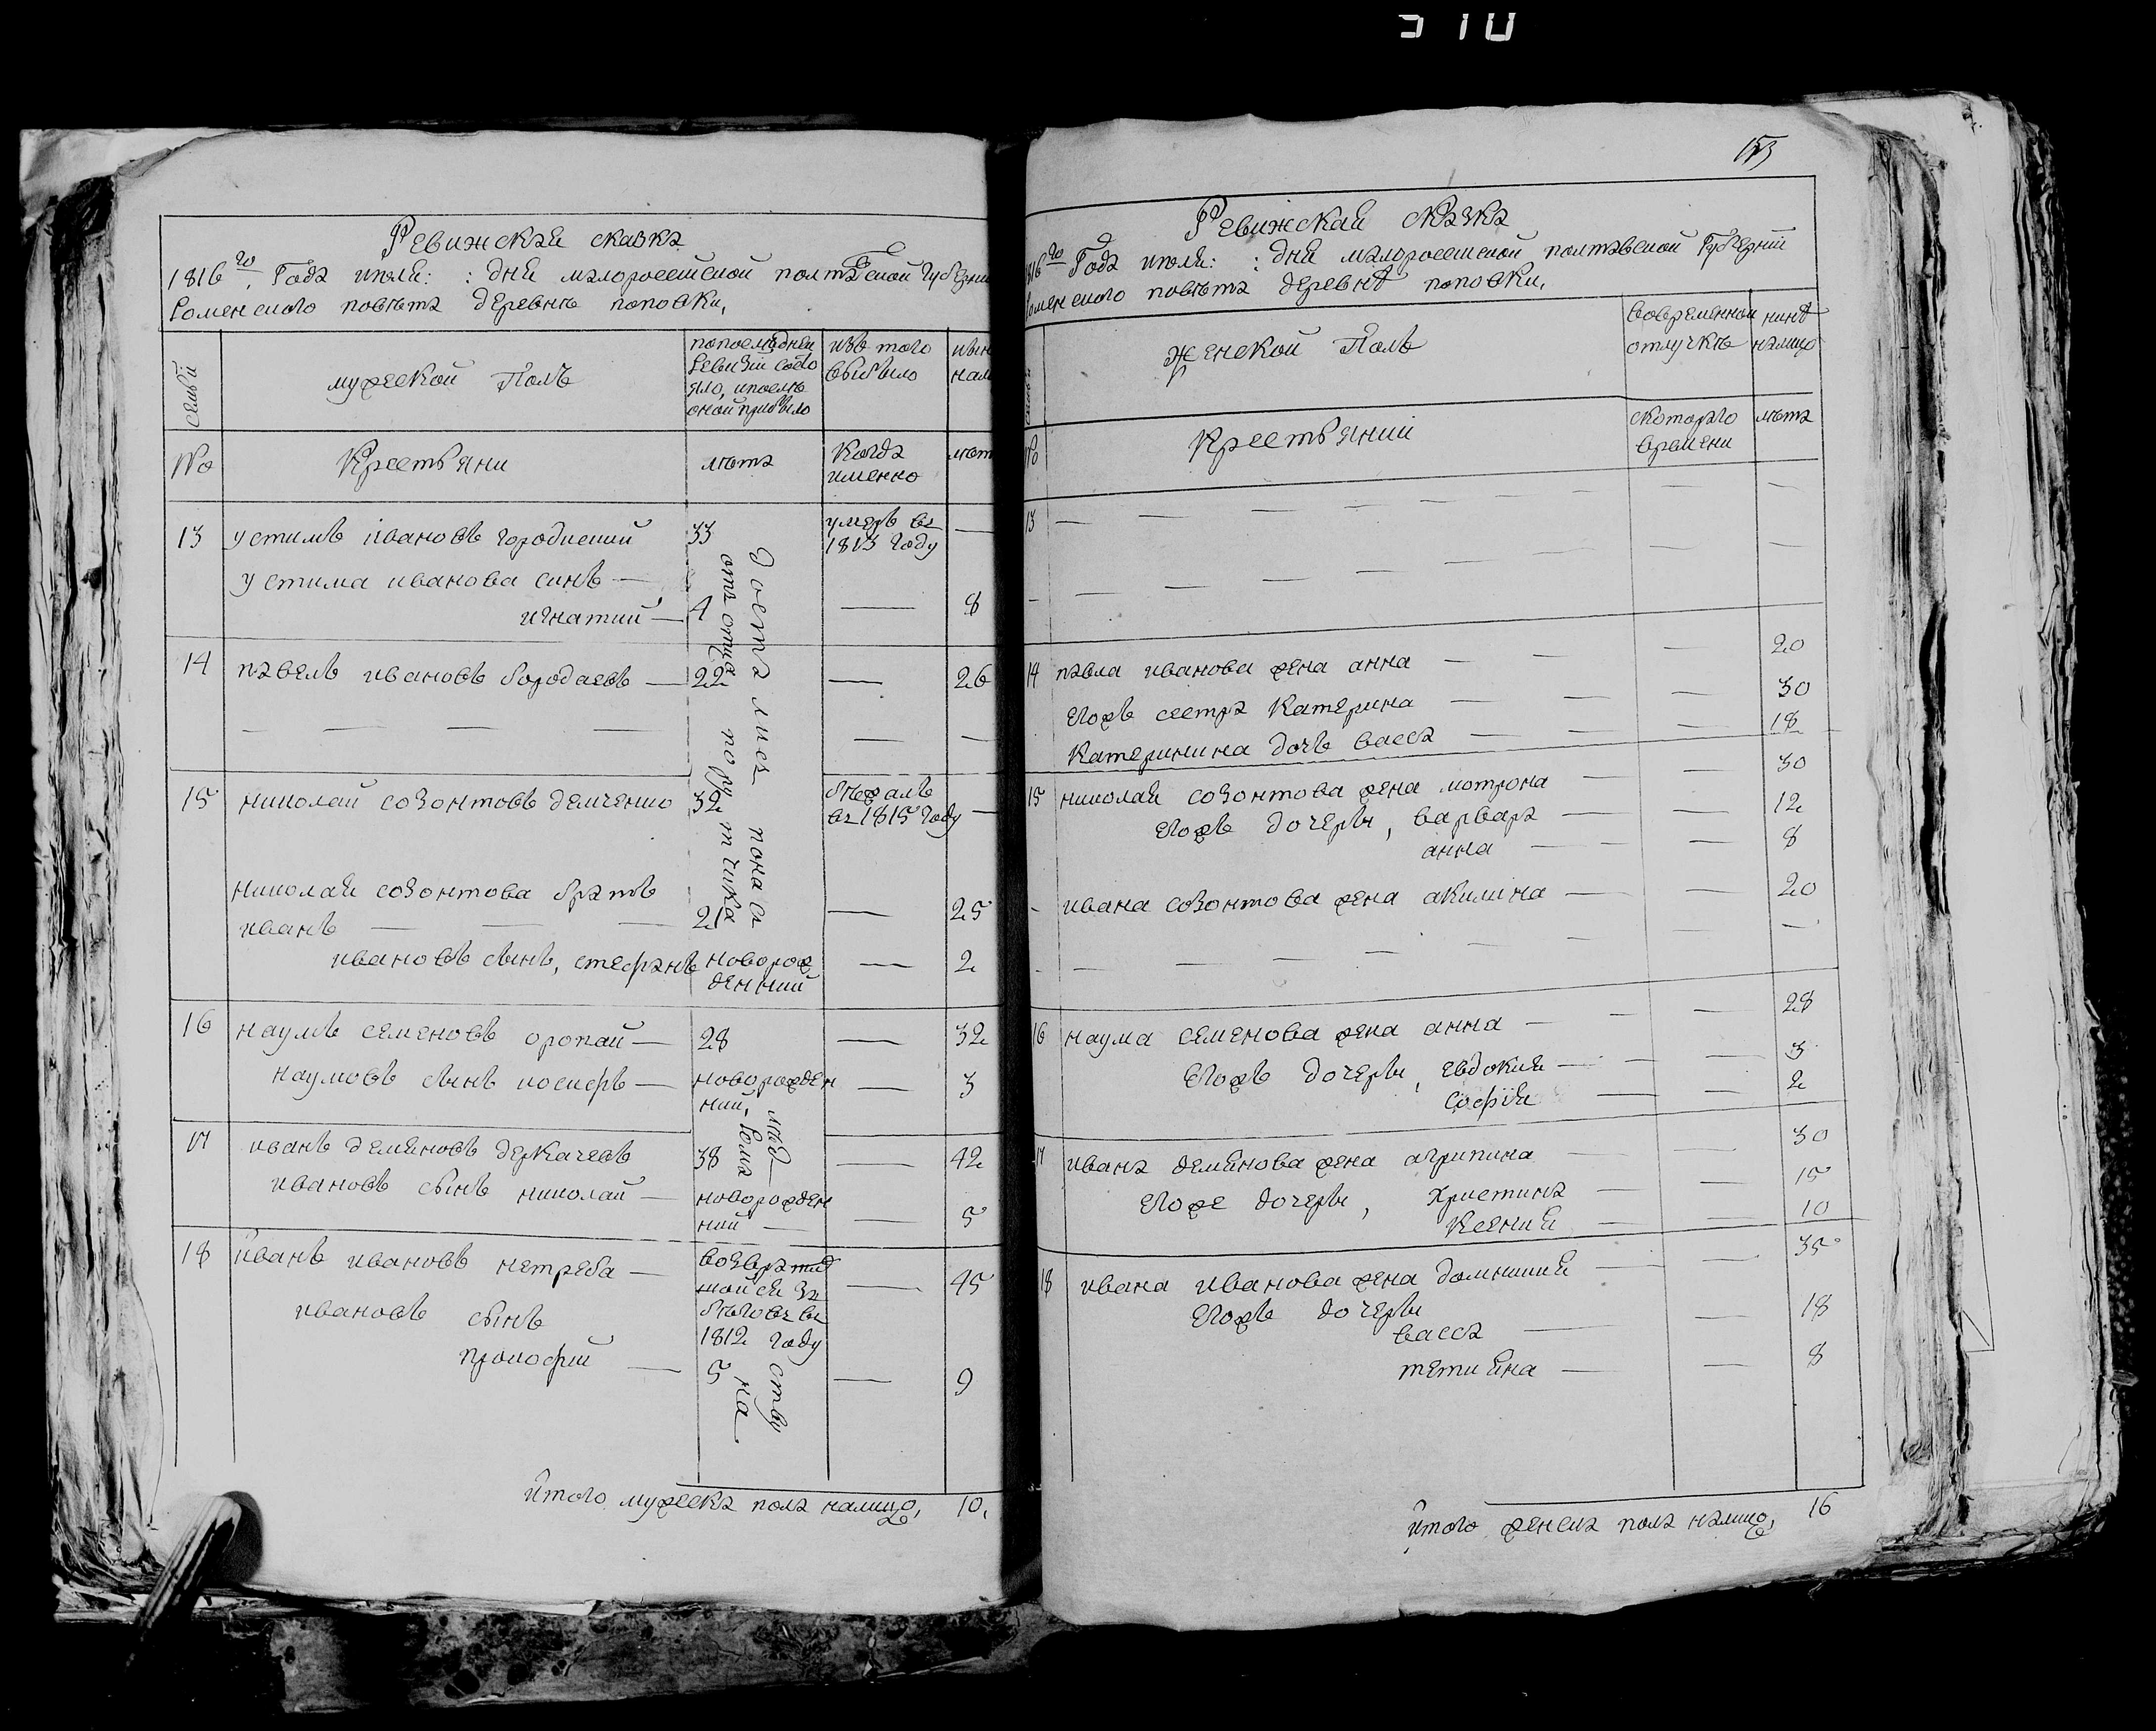 310
Ревижская сказка
1816го Года июля: : дня малороссийской полтавской губерни
Роменского повѣта деревнѣ поповки,
семьи
мужеской Полъ
попоследней
ревизіи состо
яло, и после
оной прибыло
изъ того
выбыло
нын
нали
№
Крестьяни
лѣта
Когда
именно
лѣт
13 устимъ ивановъ городнский 33 умеръ въ —
1813 году
устима иванова синъ —
игнатий — 4 — 8
14 павелъ ивановъ бородаевъ — 22 — 26
— — — — — —
15 николай созонтовъ демченко 32 бѣжалъ —
въ 1815 году
николая созонтова братъ
иванъ — — — 21 — 25
ивановъ сынъ, стефанъ новорож — 2
денний
16 наумъ семеновъ оропай — 28 — 32
наумовъ сынъ иосифъ — новорожден — 3
ний,
17 иванъ демяновъ деркачевъ 38 — 42
ивановъ сынъ николай — новорожден
ний — — 5
18 иванъ ивановъ нетреба — возврат — 45
шойся за
бѣговъ въ
1812 году
ивановъ сынъ
прокофий — 5 — 9
досталися пона сл
отъ отца по ру т чика
ству
на
Итого мужеска пола налицо, 10,
153
Ревижская сказка
1816го Года июля: : дня малороссийской полтавской Губернии
Роменского повѣта деревнѣ поповки,
женской Полъ
вовременной
отлучкѣ
нинѣ
налицо
№
Крестьянии
скоторого
времени
лѣта
13 — — — — — — — — —
— — — — — — — —
14 павла иванова жена анна — — — 20
егожъ сестра Катерина — — — 30
Катеринина дочъ васса — — — 18
15 николая созонтова жена мотрона — — 30
егожъ дочеры, варвара — — 12
анна — — — 8
ивана созонтова жена акилина — — 20
— — — — — — —
16 наума семенова жена анна — — — 28
егожъ дочеры, евдокия — — — 3
софія — — 2
17 ивана демянова жена агрипина — — 30
егоже дочеры, христина — — 15
Ксения — — 10
18 ивана иванова жена домникия — — 35
егожъ дочеры
васса — — 18
тетияна — — 8
Итого женска пола налицо, 16